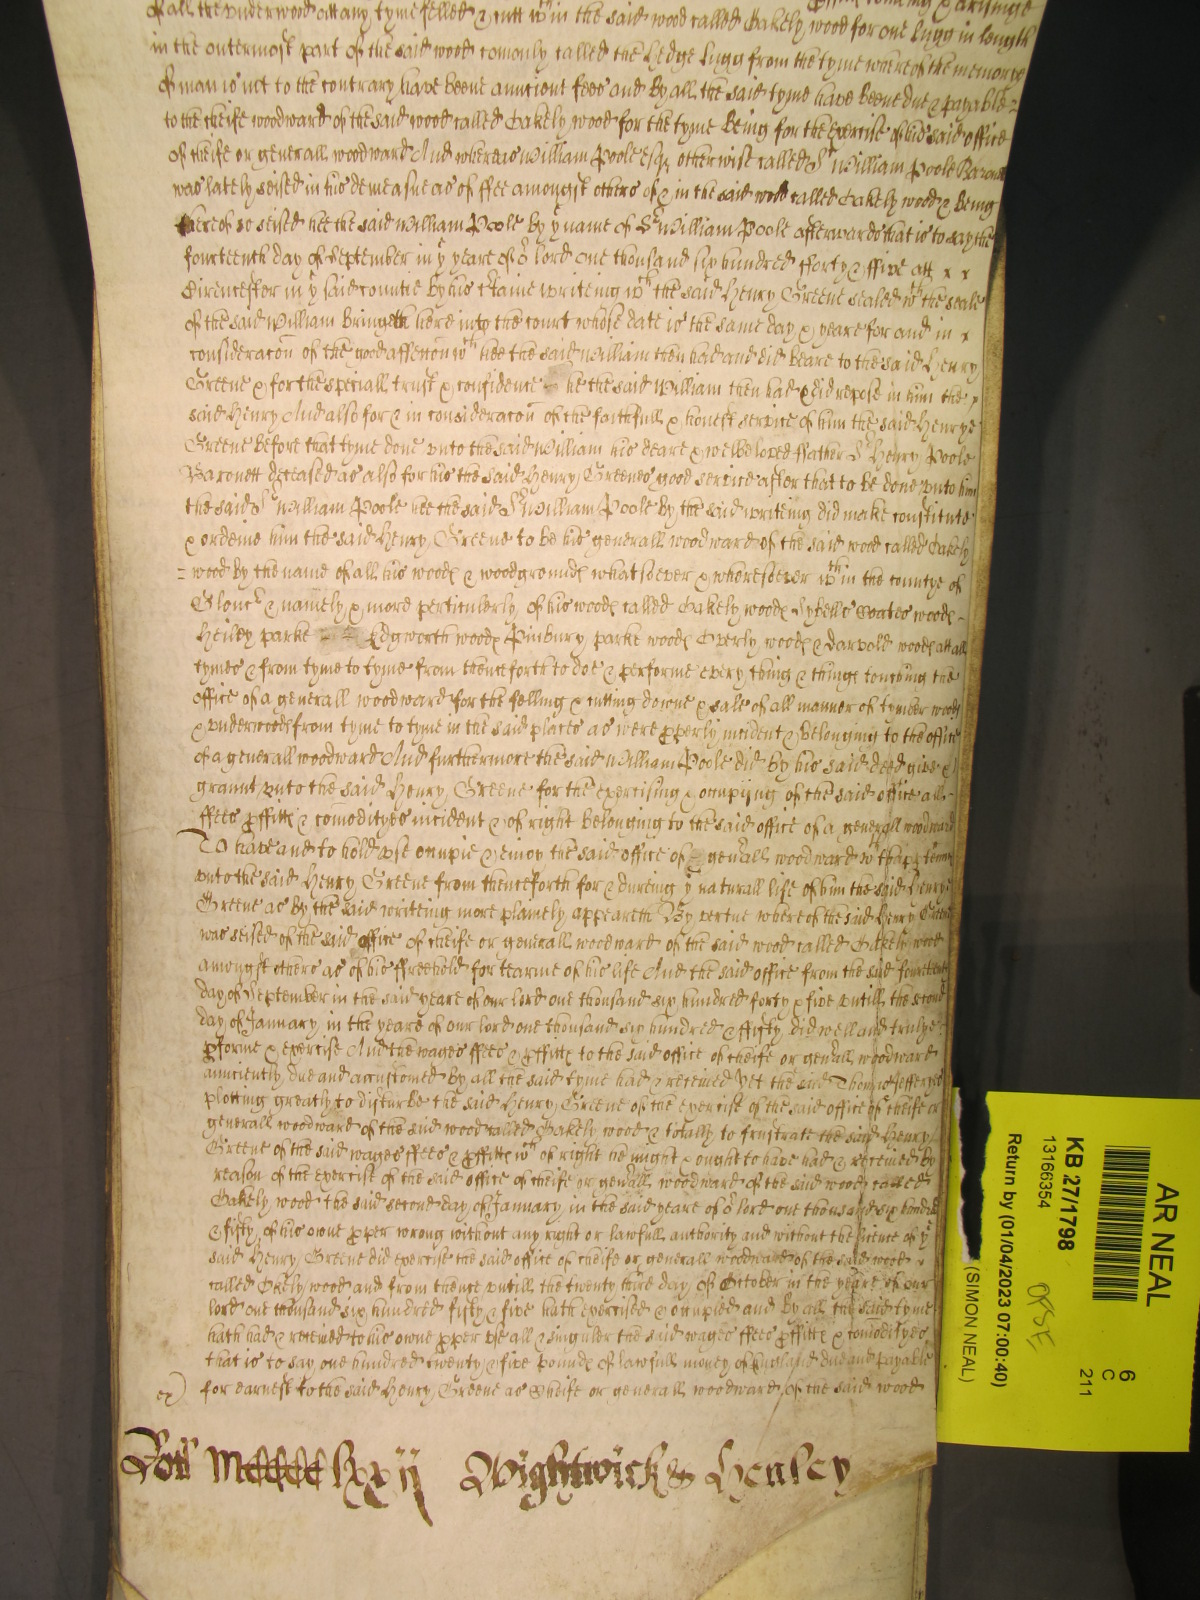 of all the underwood att any tyme felled & cutt wthin the said wood called Oakely wood for one lugg in length
in the outermost part of the said wood comonly called the hedge lugg from the tyme whereof the memory
of man is not to the contrary have beene auncient fees and by all the said tyme have beene due & payable
to the cheife woodward of the said wood called Oakely wood for the tyme being for the exercise of his said office
of cheife or generall woodward And whereas William Poole esqr otherwise called Sr William Poole Baronett
was lately seised in his demeasne as of ffee amongst others of & in the said wood called Oakely wood & being
thereof so seised hee the said William Poole by ye name of Sr William Poole afterwards that is to say the
fourteenth day of September in ye yeare of or lord one thousand six hundred fforty & ffive att
Cirencester in ye said countie by his certaine writeing wch the said Henry Greene sealed wth the seale
of the said William bringeth here into the court whose date is the same day & yeare for and in
consideracon of the good affeccon wch hee the said William then had and did beare to the said Henry
Greene & for the speciall trust & confidence he the said William then had & did repose in him the
said Henry And also for & in consideracon of the faithfull & honest service of him the said Henrye
Greene before that tyme done unto the said William his deare & welbeloved ffather Sr Henry Poole
Baronett deceased as also for his the said Henry Greenes good service after that to be done unto him
the said Sr William Poole hee the said Sr William Poole by the said writeing did make constitute
& ordeine him the said Henry Greene to be his generall woodward of the said wood called Oakely
= wood by the name of all his woods & woodgrounds whatsoever & wheresoever wthin the countye of
Gloucr & namely & more perticulerly of his woods called Oakely woods woods
Henley parke Edgworth woods Pinbury parke woods Overly woods & woods att all
tymes & from tyme to tyme from thenceforth to doe & performe every thing & things touching the
office of a generall woodward for the felling & cutting downe & sale of all manner of tymber woods
& underwoods from tyme to tyme in the said places as were pperly incident & belonging to the office
of a generall woodward And furthermore the said William Poole did by his said deed give &
graunt unto the said Henry Greene for the exercising & occupijng of the said office all
ffees pffitts & comodityes incident & of right belonging to the said office of a generall woodward
To have and to hold use occupie & enioy the said office of genrall woodward wth thapptennces
unto the said Henry Greene from thenceforth for & dureing ye naturall life of him the said Henrye
Greene as by the said writeing more plainely appeareth By vertue whereof the said Henry Greene
was seised of the said office of cheife or generall woodward of the said wood called Oakely wood
amongst others as of his ffreehold for tearme of his life And the said office from the said fourteenth
day of September in the said yeare of our lord one thousand six hundred forty & five untill the second
day of January in the yeare of our lord one thousand six hundred & ffifty did well and truly
pforme & exercise And the wages ffees & pffitts to the said office of cheife or genrall woodward
aunciently due and accustomed by all the said tyme had & received Yet the said Thomas Jefferyes
plotting greatly to disturbe the said Henry Greene of the exercise of the said office of cheife or
generall woodward of the said wood called Oakely wood & totally to frustrate the said Henry
Greene of the said wages ffees & pffitts wch of right he might & ought to have had & received by
reason of the exercise of the said office of cheife or genrall woodward of the said wood called
Oakely wood the said second day of January in the said yeare of or lord one thousand six hundred
& fifty of his owne pper wrong without any right or lawfull authority and without the licence of ye
said Henry Greene did exercise the said office of cheife or generall woodward of the said wood
called Okely wood and from thence untill the twenty third day of October in the yeare of our
lord one thousand six hundred fifty & five hath exercised & occupied and by all the said tyme
hath had & received to his owne pper use all & singuler the said wages ffees pffitts & comodityes
that is to say one hundred twenty & five pounds of lawfull money of England due and payable
ex) for earnest to the said Henry Greene as cheife or generall woodward of the said wood
Rotu MCCCCClxxij Wightwick & Henley
AR NEAL
6
C
211
KB 27/1798
13166354
Return by (01/04/2023 07:00:40)
(SIMON NEAL)
OFSE